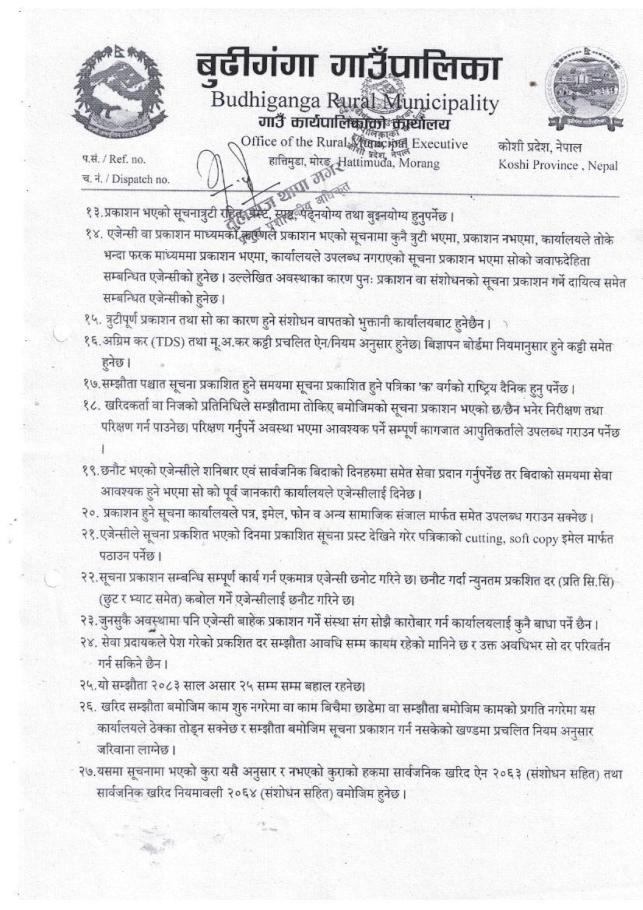 बुढीगंगा गाउँपालिका
Budhiganga Rural Municipality
गाउँ कार्यपालिकाको कार्यालय
Office of the Rural Municipal Executive
हात्तिमुडा, मोरङ, Hattimuda, Morang
कोशी प्रदेश, नेपाल
Koshi Province , Nepal
प.सं. / Ref. no.
च. नं. / Dispatch no.
१३.प्रकाशन भएको सूचनात्रुटी रहित, स्पष्ट, पढ्नयोग्य तथा बुझ्नयोग्य हुनुपर्नेछ ।
१४. एजेन्सी वा प्रकाशन माध्यमको कारणले प्रकाशन भएको सूचनामा कुनै त्रुटी भएमा, प्रकाशन नभएमा, कार्यालयले तोके
भन्दा फरक माध्यममा प्रकाशन भएमा, कार्यालयले उपलब्ध नगराएको सूचना प्रकाशन भएमा सोको जवाफदेहिता
सम्बन्धित एजेन्सीको हुनेछ । उल्लेखित अवस्थाका कारण पुनः प्रकाशन वा संशोधनको सूचना प्रकाशन गर्ने दायित्व समेत
सम्बन्धित एजेन्सीको हुनेछ ।
१५. त्रुटीपूर्ण प्रकाशन तथा सो का कारण हुने संशोधन वापतको भुक्तानी कार्यालयबाट हुनेछैन ।
१६.अग्रिम कर (TDS) तथा मू.अ.कर कट्टी प्रचलित ऐन/नियम अनुसार हुनेछ। बिज्ञापन बोर्डमा नियमानुसार हुने कट्टी समेत
हुनेछ ।
१७.सम्झौता पश्चात सूचना प्रकाशित हुने समयमा सूचना प्रकाशित हुने पत्रिका 'क' वर्गको राष्ट्रिय दैनिक हुनु पर्नेछ ।
१८. खरिदकर्ता वा निजको प्रतिनिधिले सम्झौतामा तोकिए बमोजिमको सूचना प्रकाशन भएको छ/छैन भनेर निरीक्षण तथा
परिक्षण गर्न पाउनेछ। परिक्षण गर्नुपर्ने अवस्था भएमा आवश्यक पर्ने सम्पूर्ण कागजात आपुतिकर्ताले उपलब्ध गराउन पर्नेछ
।
१९.छनौट भएको एजेन्सीले शनिबार एवं सार्वजनिक बिदाको दिनहरुमा समेत सेवा प्रदान गर्नुपर्नेछ तर बिदाको समयमा सेवा
आवश्यक हुने भएमा सो को पूर्व जानकारी कार्यालयले एजेन्सीलाई दिनेछ ।
२०. प्रकाशन हुने सूचना कार्यालयले पत्र, इमेल, फोन व अन्य सामाजिक संजाल मार्फत समेत उपलब्ध गराउन सक्नेछ ।
२१.एजेन्सीले सूचना प्रकशित भएको दिनमा प्रकाशित सूचना प्रस्ट देखिने गरेर पत्रिकाको cutting, soft copy इमेल मार्फत
पठाउन पर्नेछ ।
२२.सूचना प्रकाशन सम्बन्धि सम्पूर्ण कार्य गर्न एकमात्र एजेन्सी छनोट गरिने छ। छनौट गर्दा न्युनतम प्रकशित दर (प्रति सि.सि)
(छुट र भ्याट समेत) कबोल गर्ने एजेन्सीलाई छनौट गरिने छ।
२३.जुनसुकै अवस्थामा पनि एजेन्सी बाहेक प्रकाशन गर्ने संस्था संग सोझै कारोबार गर्न कार्यालयलाई कुनै बाधा पर्ने छैन ।
२४. सेवा प्रदायकले पेश गरेको प्रकशित दर सम्झौता आवधि सम्म कायम रहेको मानिने छ र उक्त अवधिभर सो दर परिवर्तन
गर्न सकिने छैन ।
२५.यो सम्झौता २०८३ साल असार २५ सम्म सम्म बहाल रहनेछ।
२६. खरिद सम्झौता बमोजिम काम शुरु नगरेमा वा काम बिचैमा छाडेमा वा सम्झौता बमोजिम कामको प्रगति नगरेमा यस
कार्यालयले ठेक्का तोड्न सक्नेछ र सम्झौता बमोजिम सूचना प्रकाशन गर्न नसकेको खण्डमा प्रचलित नियम अनुसार
जरिवाना लाग्नेछ ।
२७.यसमा सूचनामा भएको कुरा यसै अनुसार र नभएको कुराको हकमा सार्वजनिक खरिद ऐन २०६३ (संशोधन सहित) तथा
सार्वजनिक खरिद नियमावली २०६४ (संशोधन सहित) वमोजिम हुनेछ ।